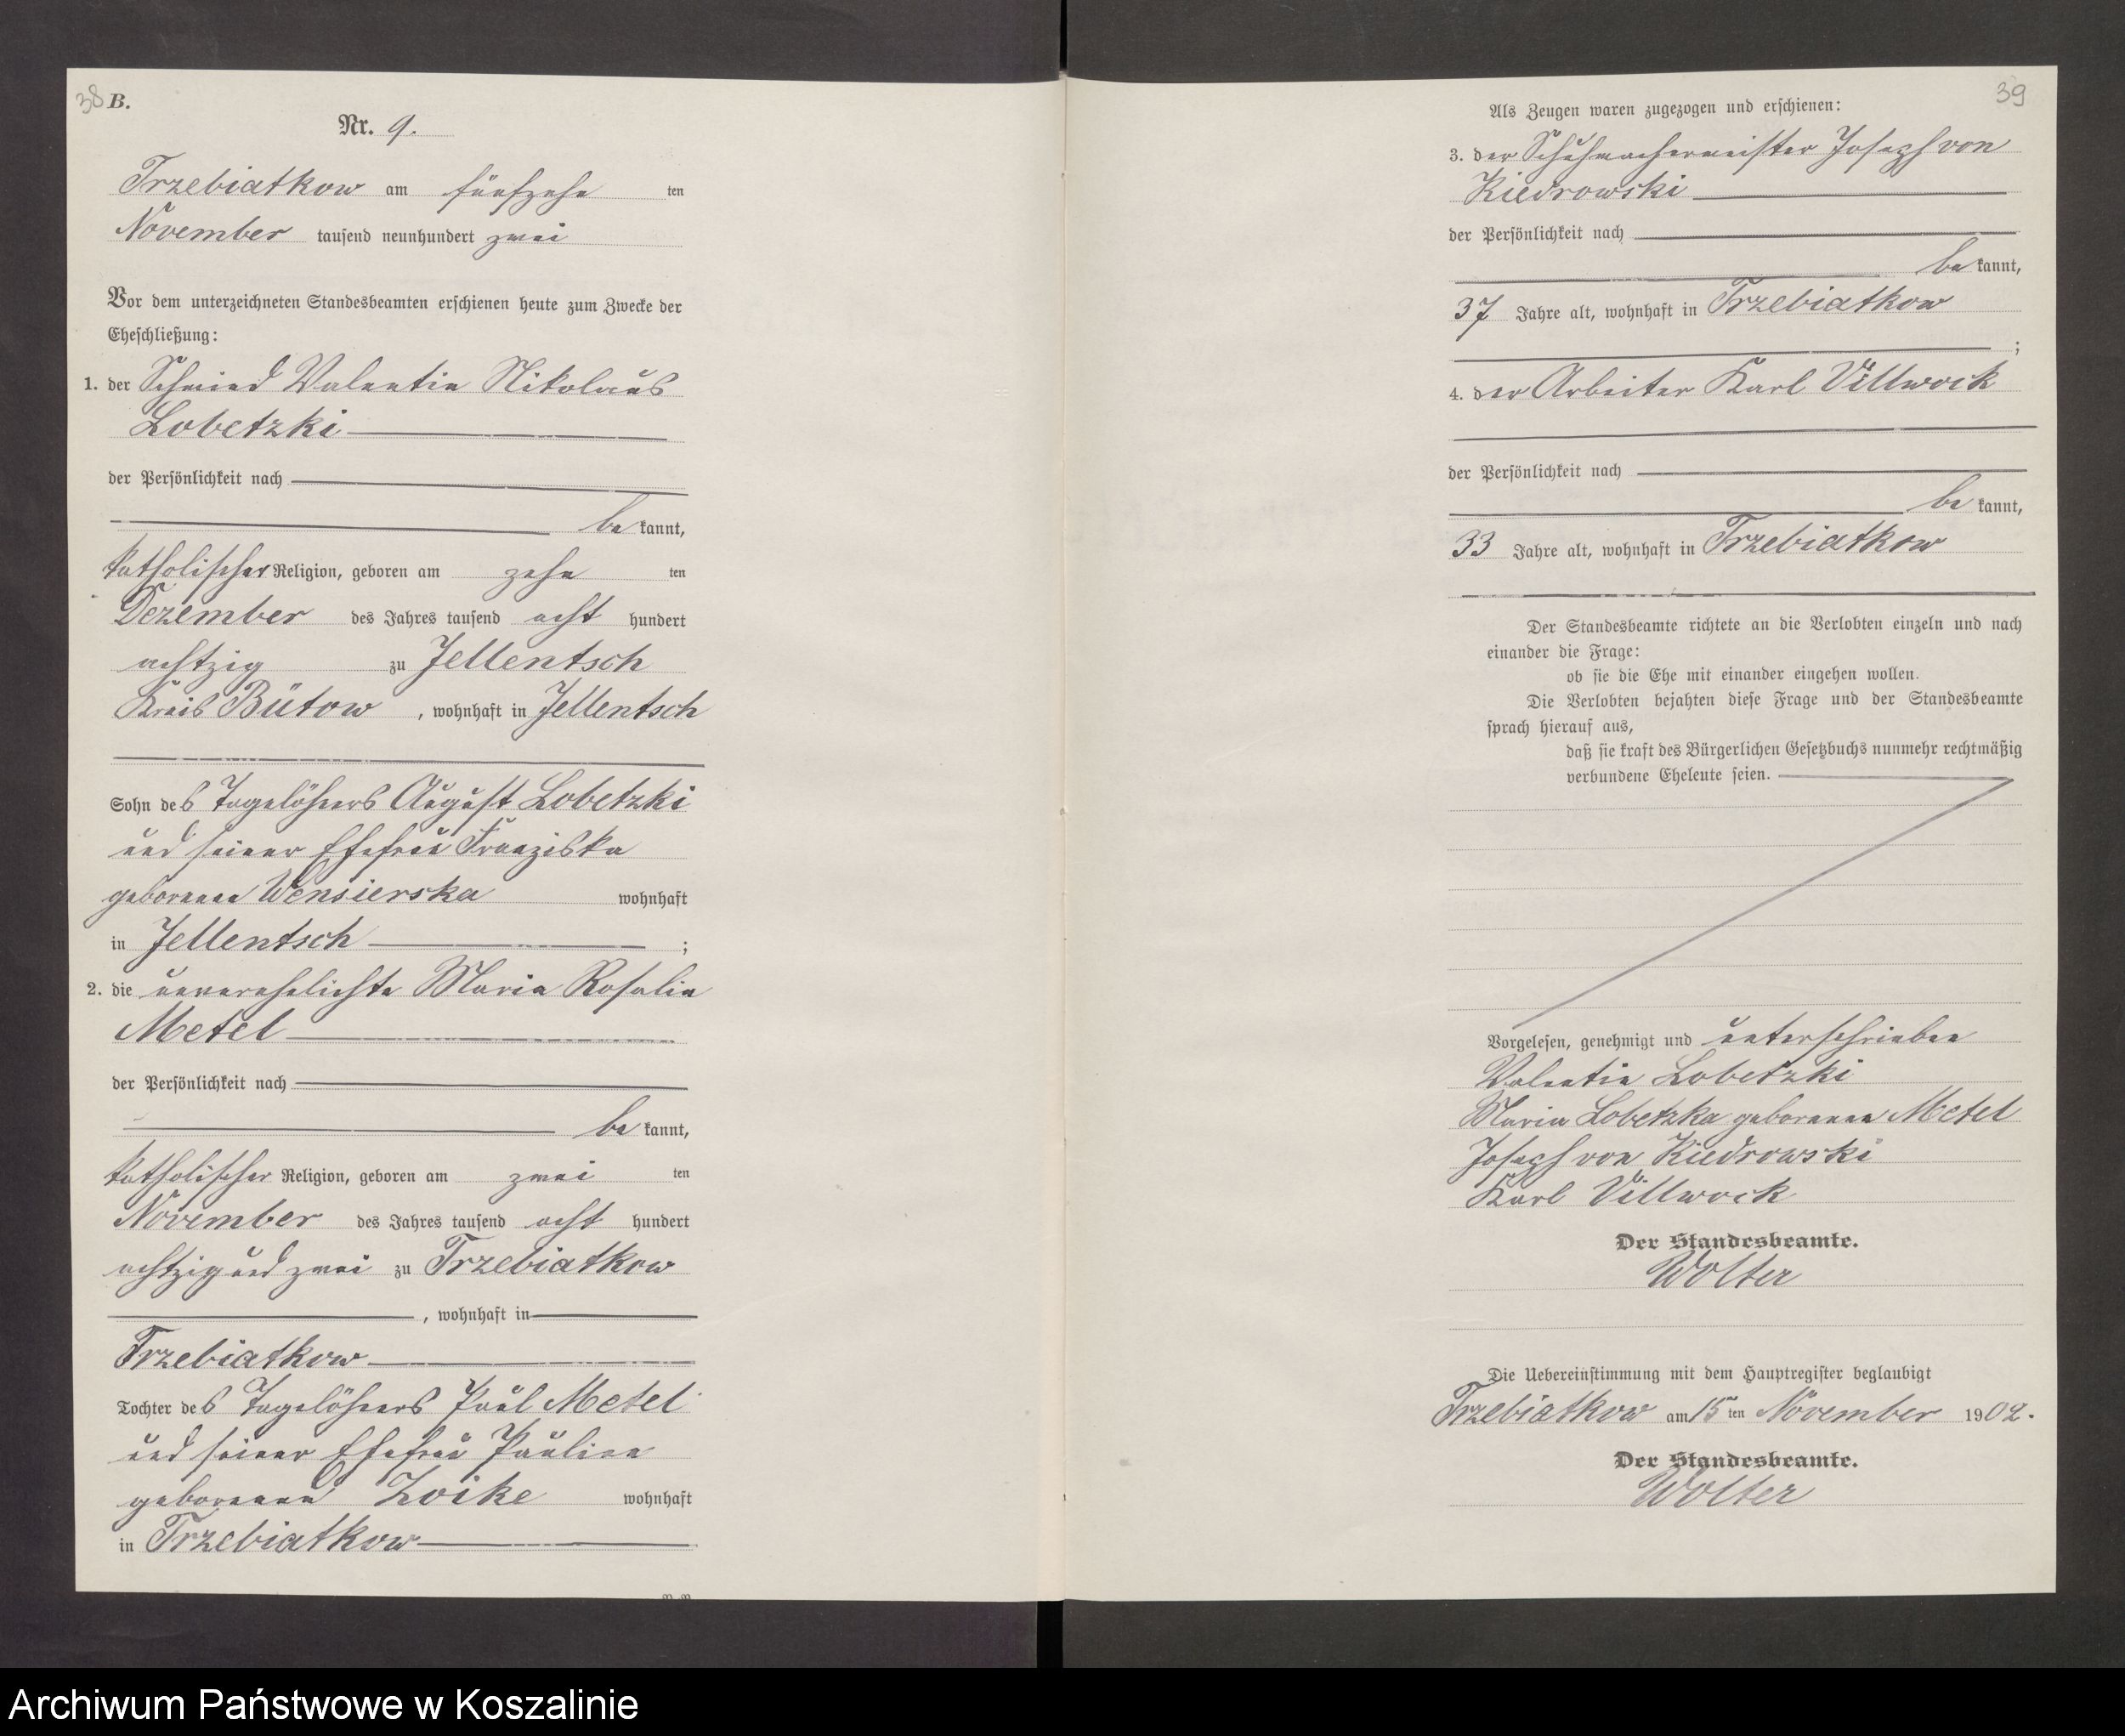 38 B.
Nr. 9.
Trzebiatkow am fünfzehn ten
November tausend neunhundert zwei
Vor dem unterzeichneten Standesbeamten erschienen heute zum Zwecke der
Eheschließung:
1. der Schmied Valentin Nikolaus
Lobetzki
der Persönlichkeit nach
be kannt,
katholischer Religion, geboren am zehn ten
Dezember des Jahres tausend acht hundert
achtzig zu Jellentsch
Kreis Bütow, wohnhaft in Jellentsch
Sohn des Tagelöhners August Lobetzki
und seiner Ehefrau Franziska
geborenen Wensierska wohnhaft
in Jellentsch ;
2. die unverehelichte Maria Rosalia
Metel
der Persönlichkeit nach
be kannt,
katholischer Religion, geboren am zwei ten
November des Jahres tausend acht hundert
achtzig und zwei zu Trzebiatkow
, wohnhaft in
Trzebiatkow
Tochter des Tagelöhners Paul Metel
und seiner Ehefrau Pauline
geborenen Zoike wohnhaft
in Trzebiatkow
39
Als Zeugen waren zugezogen und erschienen:
3. der Schuhmachermeister Joseph von
Kiedrowski
der Persönlichkeit nach
be kannt,
37 Jahre alt, wohnhaft in Trzebiatkow
;
4. der Arbeiter Karl Villwock
der Persönlichkeit nach
be kannt,
33 Jahre alt, wohnhaft in Trzebiatkow
Der Standesbeamte richtete an die Verlobten einzeln und nach
einander die Frage:
ob sie die Ehe mit einander eingehen wollen.
Die Verlobten bejahten diese Frage und der Standesbeamte
sprach hierauf aus,
daß sie kraft des Bürgerlichen Gesetzbuchs nunmehr rechtmäßig
verbundene Eheleute seien.
Vorgelesen, genehmigt und unterschrieben
Valentin Lobetzki
Maria Lobetzka geborenen Metel
Joseph von Kiedrowski
Karl Villwock
Der Standesbeamte.
Wolter
Die Uebereinstimmung mit dem Hauptregister beglaubigt
Trzebiatkow am 15 ten November 1902.
Der Standesbeamte.
Wolter
Archiwum Państwowe w Koszalinie